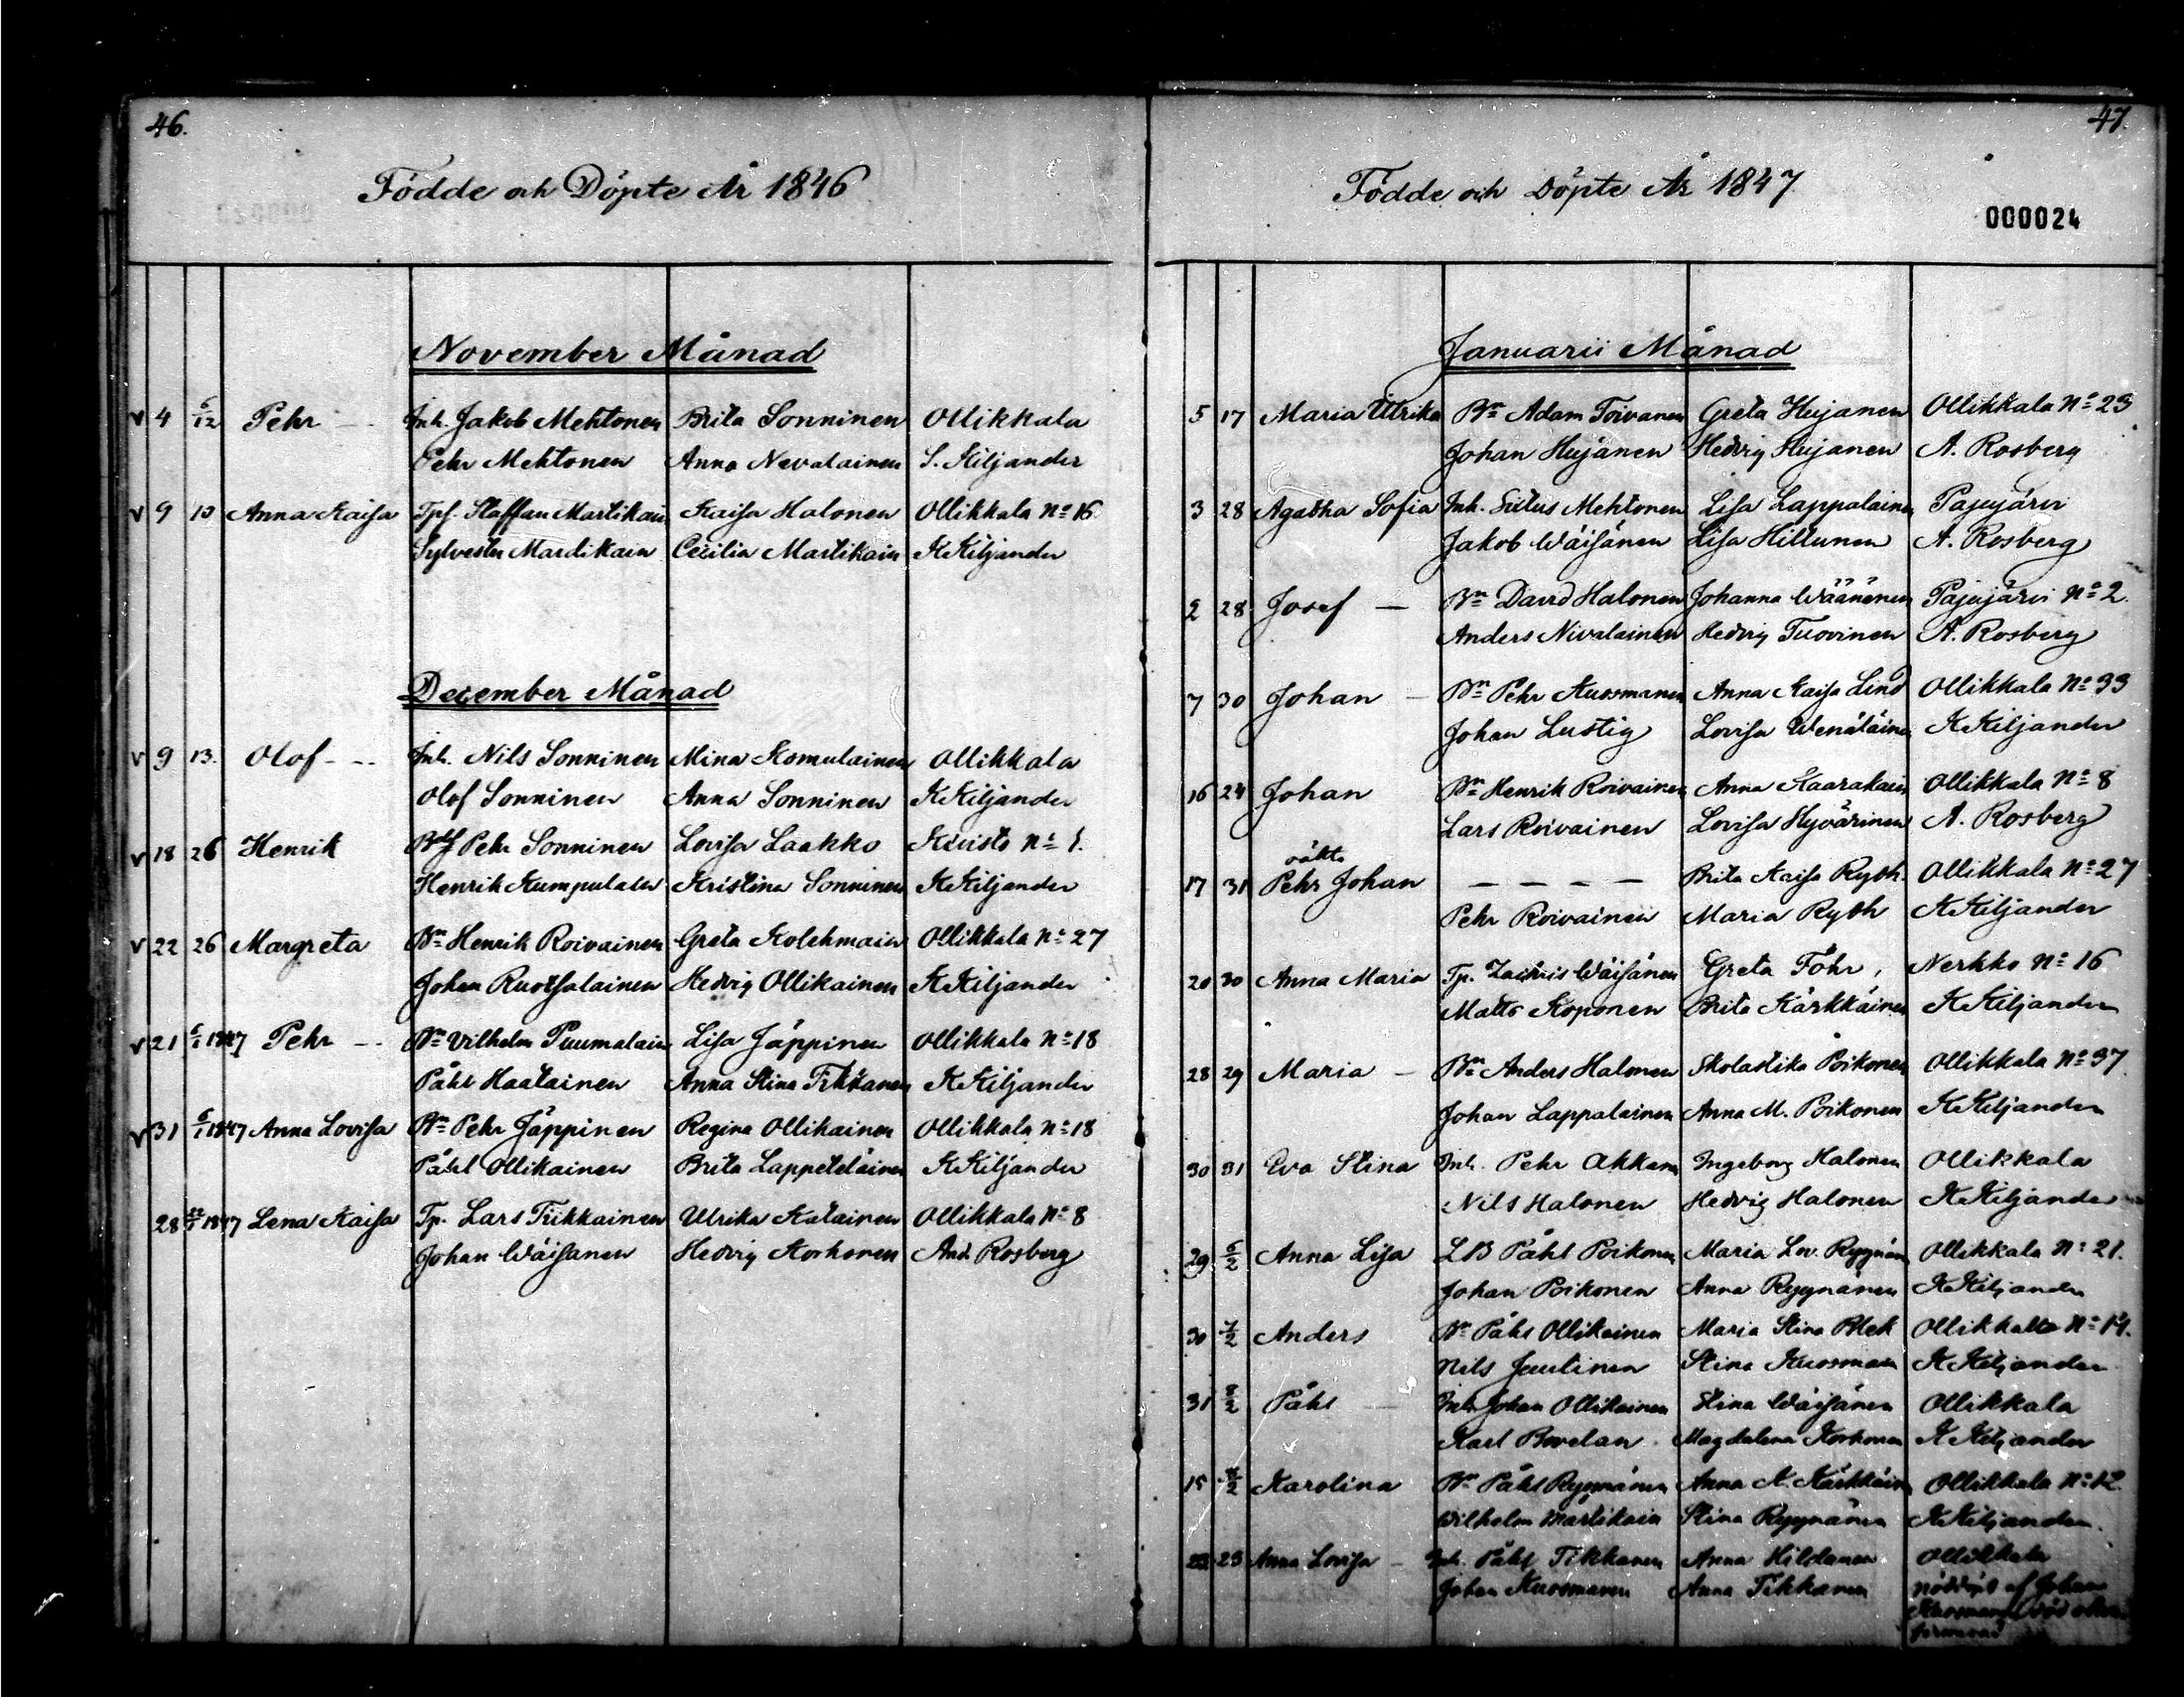 46.
Födde och Döpte År 1846
November Månad
v 4 6/12 Pehr - Inh. Jakob Mehtonen Brita Sonninen Ollikkala
Pehr Mehtonen Anna Nevalainen S. Kiljander
v 9 10 Anna Kaisa Tpf. Staffan Martikain Kaisa Halonen Ollikkala No 16
Sylvester Martikain Cecilia Martikain K Kiljander
December Månad
v 9 13. Olof - - Inh. Nils Sonninen Mina Komulainen Ollikkala
Olof Sonninen Anna Sonninen K Kiljander
v 18 26 Henrik Pehr Sonninen Lovisa Laakko No 1.
Henrik Kumpulain Kristina Sonninen K Kiljander
v 22 26 Margreta Bn Henrik Roivainen Greta Kolehmain Ollikkala No 27
Johan Ruotsalainen Hedvig Ollikainen K Kiljander
v 21 6/1 1847 Pehr - - Bn Vilhelm Puumalain Lisa Jäppinen Ollikkala No 18
Påhl Haatainen Anna Stina Tikkanen K Kiljander
v 31 6/1 1847 Anna Lovisa Bn Pehr Jäppinen Regina Ollikainen Ollikkala No 18
Påhl Ollikainen Brita Lappeteläinen K Kiljander
28 1847 Lena Kaisa Tp. Lars Tirkkainen Ulrika Katainen Ollikkala No 8
Johan Wäisänen Hedvig Korhonen And. Rosberg
47.
Födde och Döpte År 1847
000024
Januarii Månad
5 17 Maria Ulrika Bn Adam Toivanen Greta Hujanen Ollikkala No 23
Johan Hujanen Hedvig Hujanen A. Rosberg
3 28 Agatha Sofia Inh. Mehtonen Lisa Lappalainen Pajujärvi
Jakob Wäisänen Lisa Hillunen A. Rosberg
2 28 Josef - Bn David Halonen Johanna Wäänänen Pajujärvi No 2.
Anders Nivalainen Hedvig Tuovinen A. Rosberg
7 30 Johan - Bn Pehr Kuosmanen Anna Kaisa Lind Ollikkala No 33
Johan Lustig Lovisa Wenäläinen K Kiljander
16 24 Johan Bn Henrik Roivainen Anna Kaarakain Ollikkala No 8
Lars Roivainen Lovisa Hyvärinen A. Rosberg
oäkta
17 31 Pehr Johan - - - - Brita Kaisa Ryth. Ollikkala No 27
Pehr Roivainen Maria Ryth K Kiljander
20 30 Anna Maria Tp. Zachris Wäisänen Greta Föhr, Nerkko No 16
Matts Koponen Brita Kärkkäinen K Kiljander
28 29 Maria - Bn Anders Halonen Skolastika Poikonen Ollikkala No 37.
Johan Lappalainen Anna M. Poikonen K Kiljander
30 31 Eva Stina Inh. Pehr Akkanen Ingeborg Halonen Ollikkala
Nils Halonen Hedvig Halonen K Kiljander
29 6/2 Anna Lisa LB Påhl Poikonen Maria Lov. Ryynän Ollikkala No 21.
Johan Poikonen Anna Ryynänen K Kiljander
30 7/2 Anders Bn Påhl Ollikainen Maria Stina Blek Ollikkala No 14.
Nils Juutinen Stina Kuosman K Kiljander
31 8/2 Påhl - Inh. Johan Ollikainen Stina Wäisänen Ollikkala
Karl Bovelan Magdalena Korhonen K Kiljander
15 Karolina Bn Påhl Ryynänen Anna K. Kärkkäin Ollikkala No 12.
Wilhelm Martikain Stina Ryynänen K Kiljander.
23 23 Anna Lovisa - Inh. Påhl Tikkanen Anna Hildanen Ollikkala
Johan Kuosmanen Anna Tikkanen nöddöpt af Johan
Kuosmanen